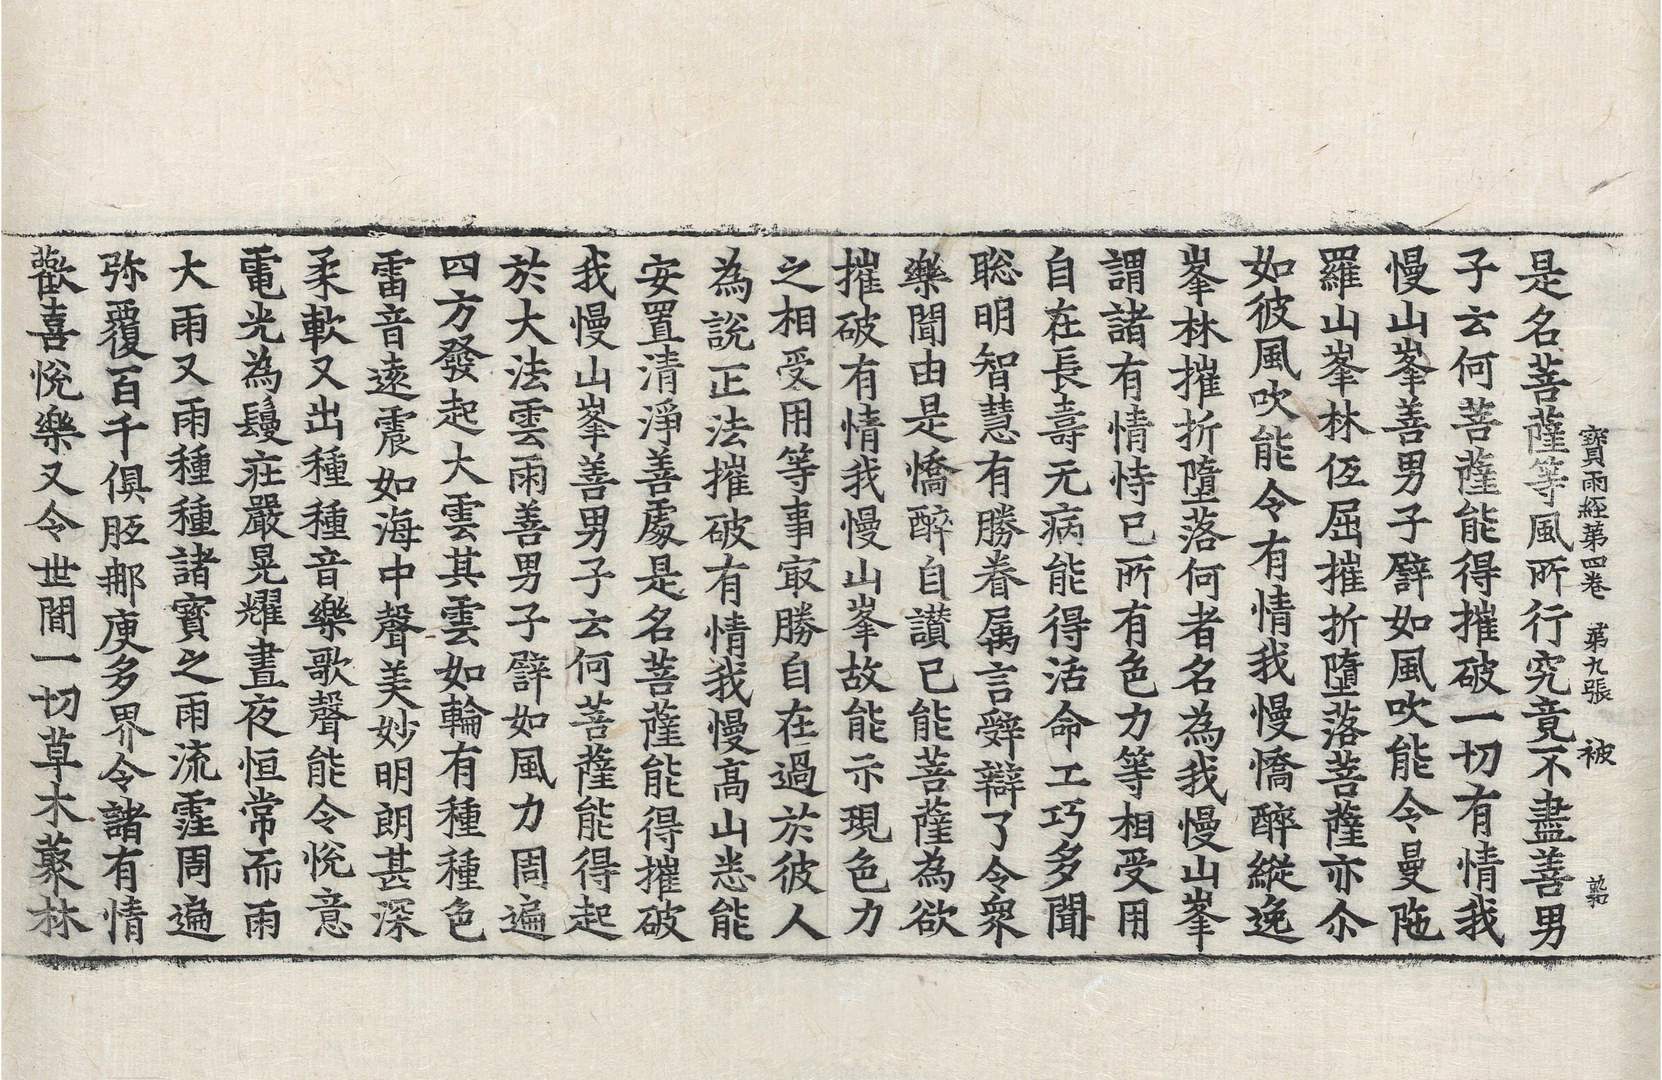 寶雨經第四卷 第九張 被
是名菩薩等風所行究竟不盡善男
子云何菩薩能得摧破一切有情我
慢山峯善男子譬如風吹能令曼陁
羅山峯林伍屈摧折墮落菩薩亦尒
如彼風吹能令有情我慢憍醉縱逸
峯林摧折墮落何者名為我慢山峯
謂諸有情恃己所有色力等相受用
自在長壽无病能得活命工巧多聞
聡明智慧有勝眷属言辤辯了令衆
樂聞由是憍醉自讃己能菩薩為欲
摧破有情我慢山峯故能示現色力
之相受用等事冣勝自在過於彼人
為說正法摧破有情我慢高山悉能
安置清淨善處是名菩薩能得摧破
我慢山峯善男子云何菩薩能得起
於大法雲雨善男子譬如風力周遍
四方發起大雲其雲如輪有種種色
雷音遠震如海中聲美妙明朗甚深
柔軟又出種種音樂歌聲能令悅意
電光為鬘莊嚴晃耀晝夜恒常而雨
大雨又雨種種諸寶之雨流霔周遍
弥覆百千俱胝𨙻庾多界令諸有情
歡喜悅樂又令世間一切草木藂林